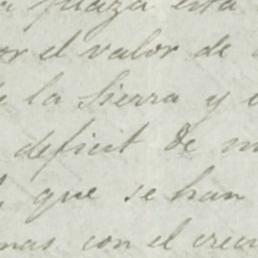 a plaza esta
or el valor de
la Sierra y
deficit de
que se han
mas con el crec